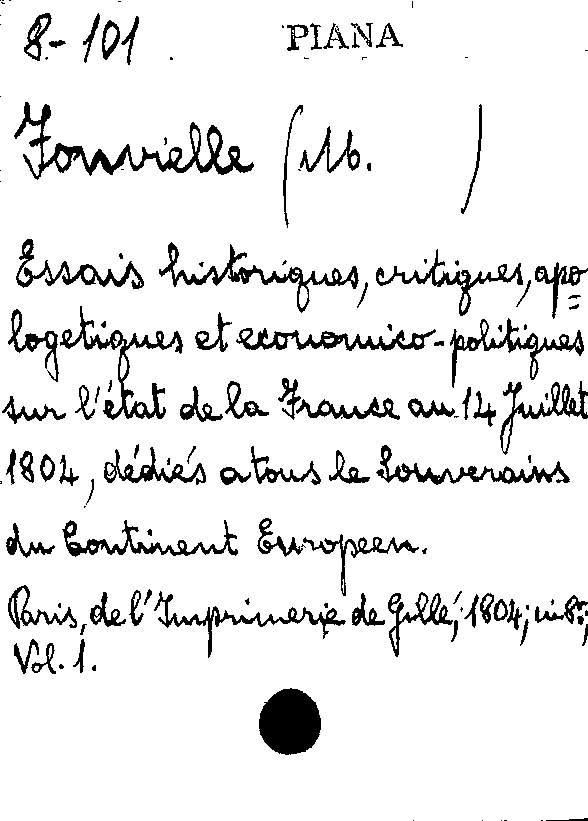 8-101 PIANA
Fonvielle (M. )
Essais historiques, critiques, apo=
logetiques et economico-politiques
sur l'état de la France au 14 Juillet
1804, dédiés a tous le Souverains
du Continent Europeen.
Paris, de l'Imprimerie de Gillé, 1804; in 8º;
Vol. 1.